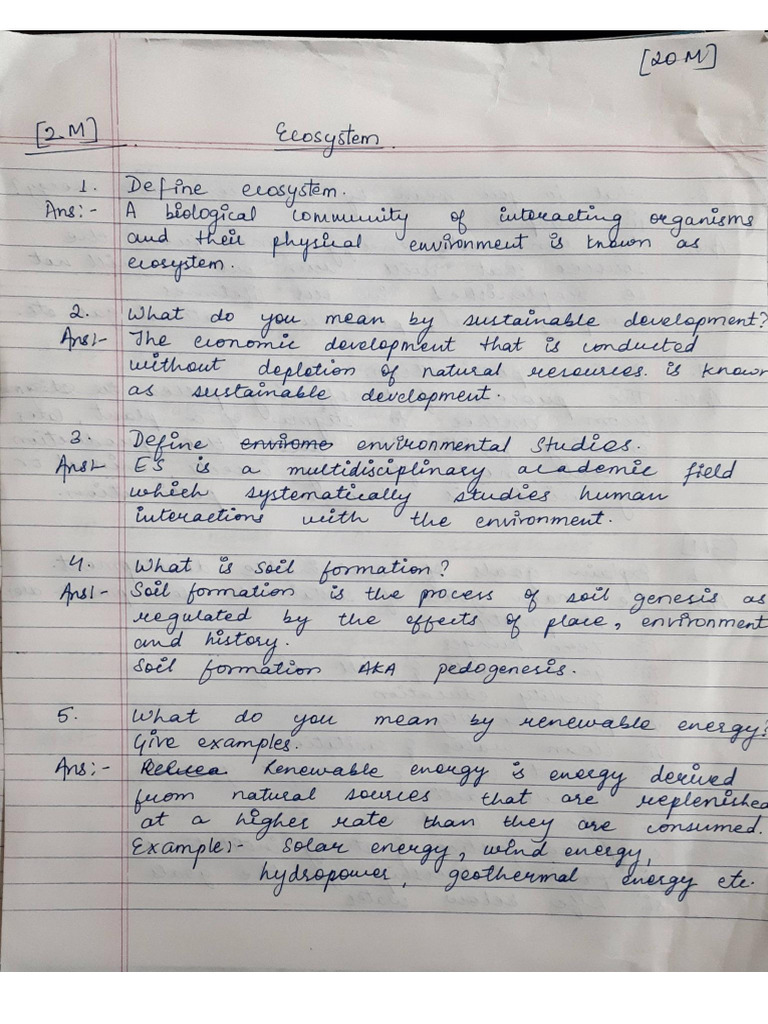 [20M]
[2M]
Ecosystem.
1. Define ecosystem.
Ans:- A biological community of interacting organisms
and their physical environment is known as
ecosystem.
2. What do you mean by sustainable development?
Ans:- The economic development that is conducted
without depletion of natural resources. is known
as sustainable development.
3. Define environmental Studies.
Ans:- ES is a multidisciplinary academic field
which systematically studies human
interactions with the environment.
4. What is soil formation?
Ans:- Soil formation is the process of soil genesis as
regulated by the effects of place, environment
and history.
Soil formation AKA pedogenesis.
5. What do you mean by renewable energy?
Give examples.
Ans:- Renewable energy is energy derived
from natural sources that are replenished
at a higher rate than they are consumed.
Example:- Solar energy, wind energy,
hydropower, geothermal energy etc.